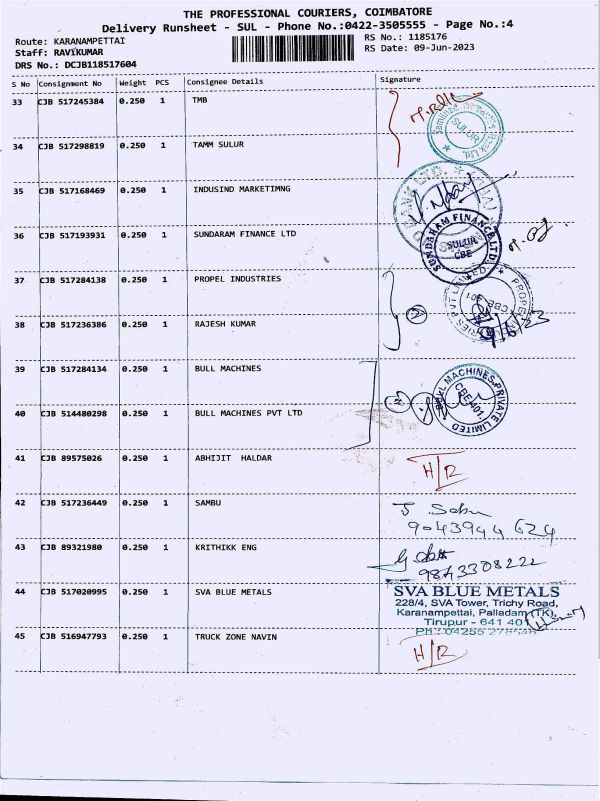 THE PROFESSIONAL COURIERS, COIMBATORE
Delivery Runsheet - SUL - Phone No.:0422-3505555 - Page No.:4
Route: KARANAMPETTAI
RS No.: 1185176
Staff: RAVIKUMAR
RS Date: 09-Jun-2023
DRS No.: DCJB118517604
S No Consignment No Weight PCS Consignee Details Signature
33 CJB 517245384 0.250 1 TMB
34 CJB 517298819 0.250 1 TAMM SULUR
SULUR
35 CJB 517168469 0.250 1 INDUSIND MARKETIMNG
36 CJB 517193931 0.250 1 SUNDARAM FINANCE LTD
SUNDARAM FINANCE LTD.
SULUR
CBE
37 CJB 517284138 0.250 1 PROPEL INDUSTRIES
38 CJB 517236386 0.250 1 RAJESH KUMAR
2
39 CJB 517284134 0.250 1 BULL MACHINES
40 CJB 514480298 0.250 1 BULL MACHINES PVT LTD
2
MACHINES PRIVATE LIMITED
41 CJB 89575026 0.250 1 ABHIJIT HALDAR
H/R
42 CJB 517236449 0.250 1 SAMBU
9043944624
43 CJB 89321980 0.250 1 KRITHIKK ENG
9843308222
44 CJB 517020995 0.250 1 SVA BLUE METALS
SVA BLUE METALS
228/4, SVA Tower, Trichy Road,
Karanampettai, Palladam (TK),
Tirupur - 641 401
45 CJB 516947793 0.250 1 TRUCK ZONE NAVIN
H/R